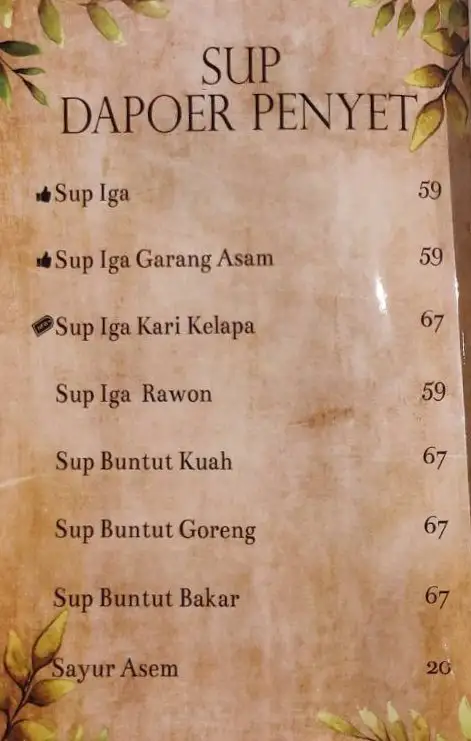 SUP
DAPOER PENYET
Sup Iga 59
Sup Iga Garang Asam 59
Sup Iga Kari Kelapa 67
Sup Iga Rawon 59
Sup Buntut Kuah 67
Sup Buntut Goreng 67
Sup Buntut Bakar 67
Sayur Asem 20